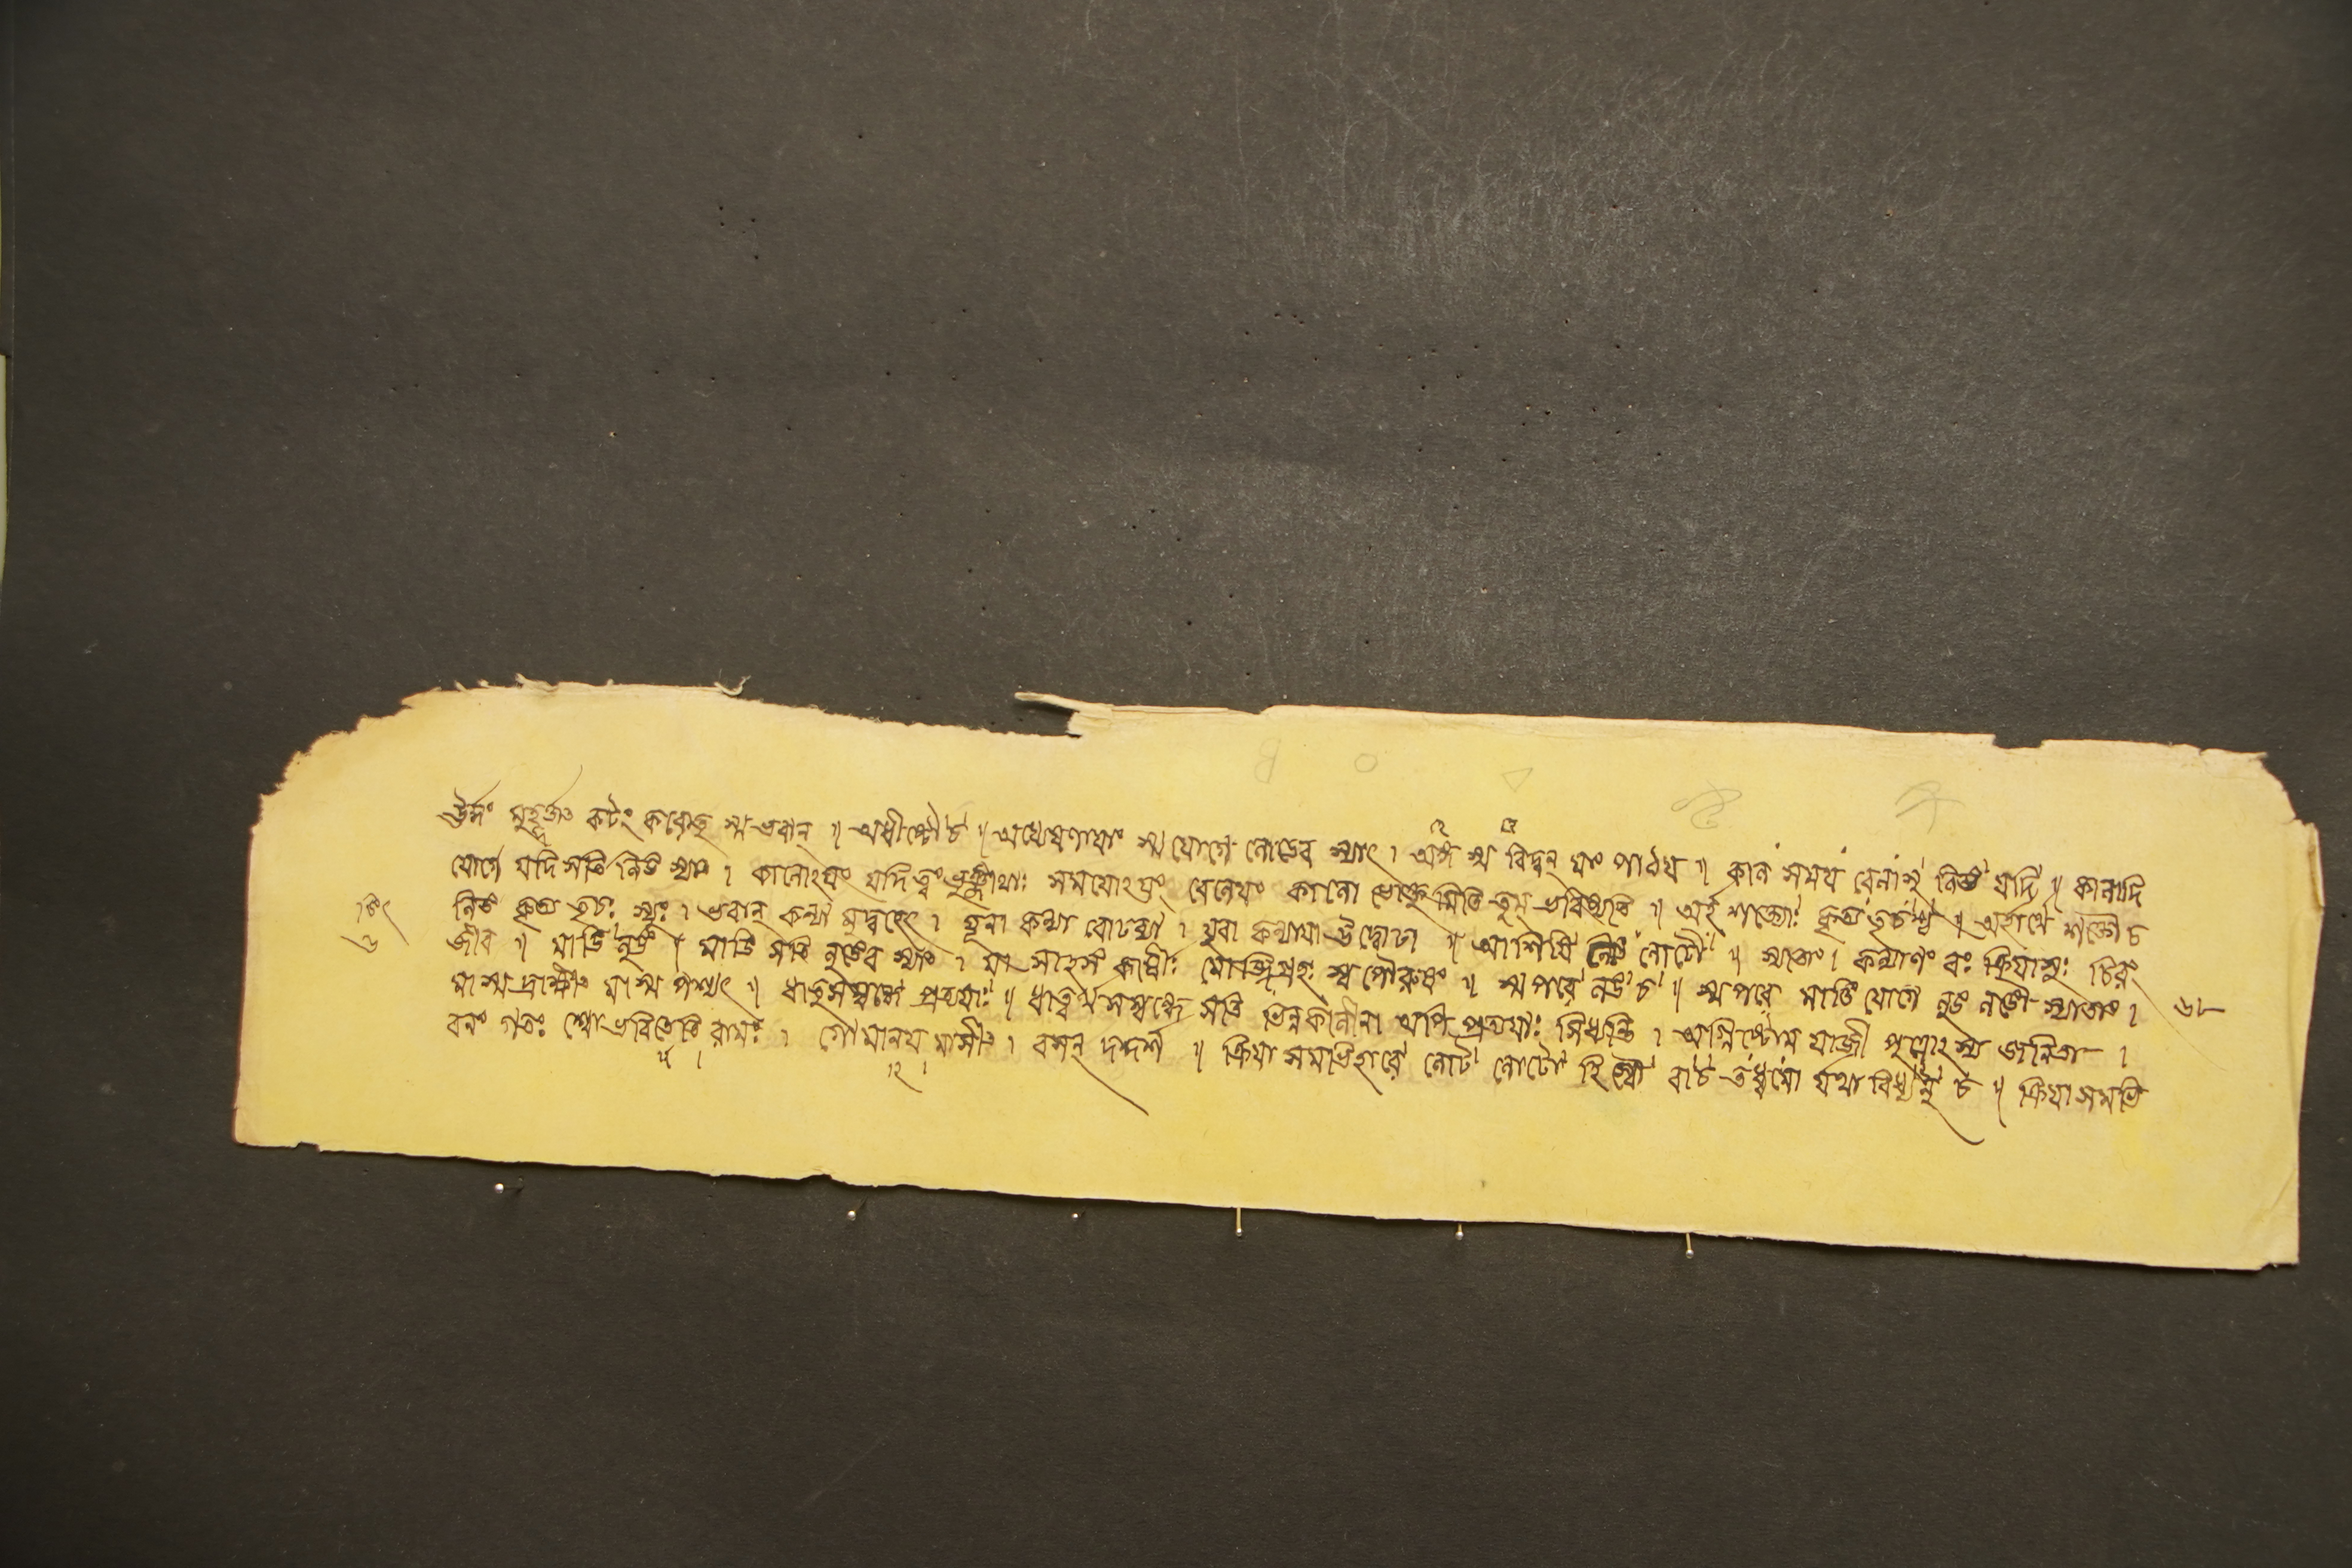 ঊর্দ্ধং মুহূর্ত্তাৎ কটং করোতু স্ম ভবান্ ॥ অধীষ্টৌ চ ॥ অধ্যেষণায়াং স্ম যোগে লোডেব স্যাৎ । অঙ্গ স্ম বিদ্বন্ মাং পাঠয় ॥ কাল সময় বেলাসু লিঙ যদি ॥ কালাদি
যোগে যদি সতি লিঙ স্যাৎ । কালোঽয়ং যদি ত্বং ভুঞ্জীথাঃ সময়োঽয়ং বেলেয়ং কালো ভোক্তুমিতি তুম্ ভবিষ্যতি ॥ অর্হ শক্ত্যোঃ কৃত্য তৃচশ্চ ॥ অর্হার্থে শক্তৌ চ
লিঙ কৃত্য তৃচঃ স্যুঃ । ভবান্ কন্যা মুদ্বহেৎ । যূনা কন্যা বোঢব্যা । যুবা কন্যায়া উদ্বোঢা ॥ আশিষি লিঙ লোটৌ ॥ স্যাতাং । কল্যাণং বঃ ক্রিয়াসুঃ চিরং
জীব ॥ মাঙি লুঙ ॥ মাঙি সতি লুঙেব স্যাৎ । মা সাহসং কার্ষীঃ স্ব পৌরুষং ॥ স্ম পরে লঙ চ ॥ স্ম পরে মাঙি যোগে লুঙ লঙৌ স্যাতাং ।
মা স্ম দ্রাক্ষীৎ মা স্ম পশ্যৎ ॥ ধাতুসম্বন্ধে প্রত্যয়াঃ ॥ ধাত্বর্থসম্বন্ধে সতি ভিন্নকালীনা অপি প্রত্যয়াঃ সিধ্যন্তি । অগ্নিষ্টোম যাজী পুত্রোঽস্য জনিতা ।
বনং গতঃ শ্বো ভবিতেতি রামঃ । গোমানয় মাসীৎ । বসন্ দদর্শ ॥ ক্রিয়া সমভিহারে লোট লোটো হি স্বৌ বা চ তধ্বমো র্যথা বিধ্যনু চ ॥ ক্রিয়া সমভি